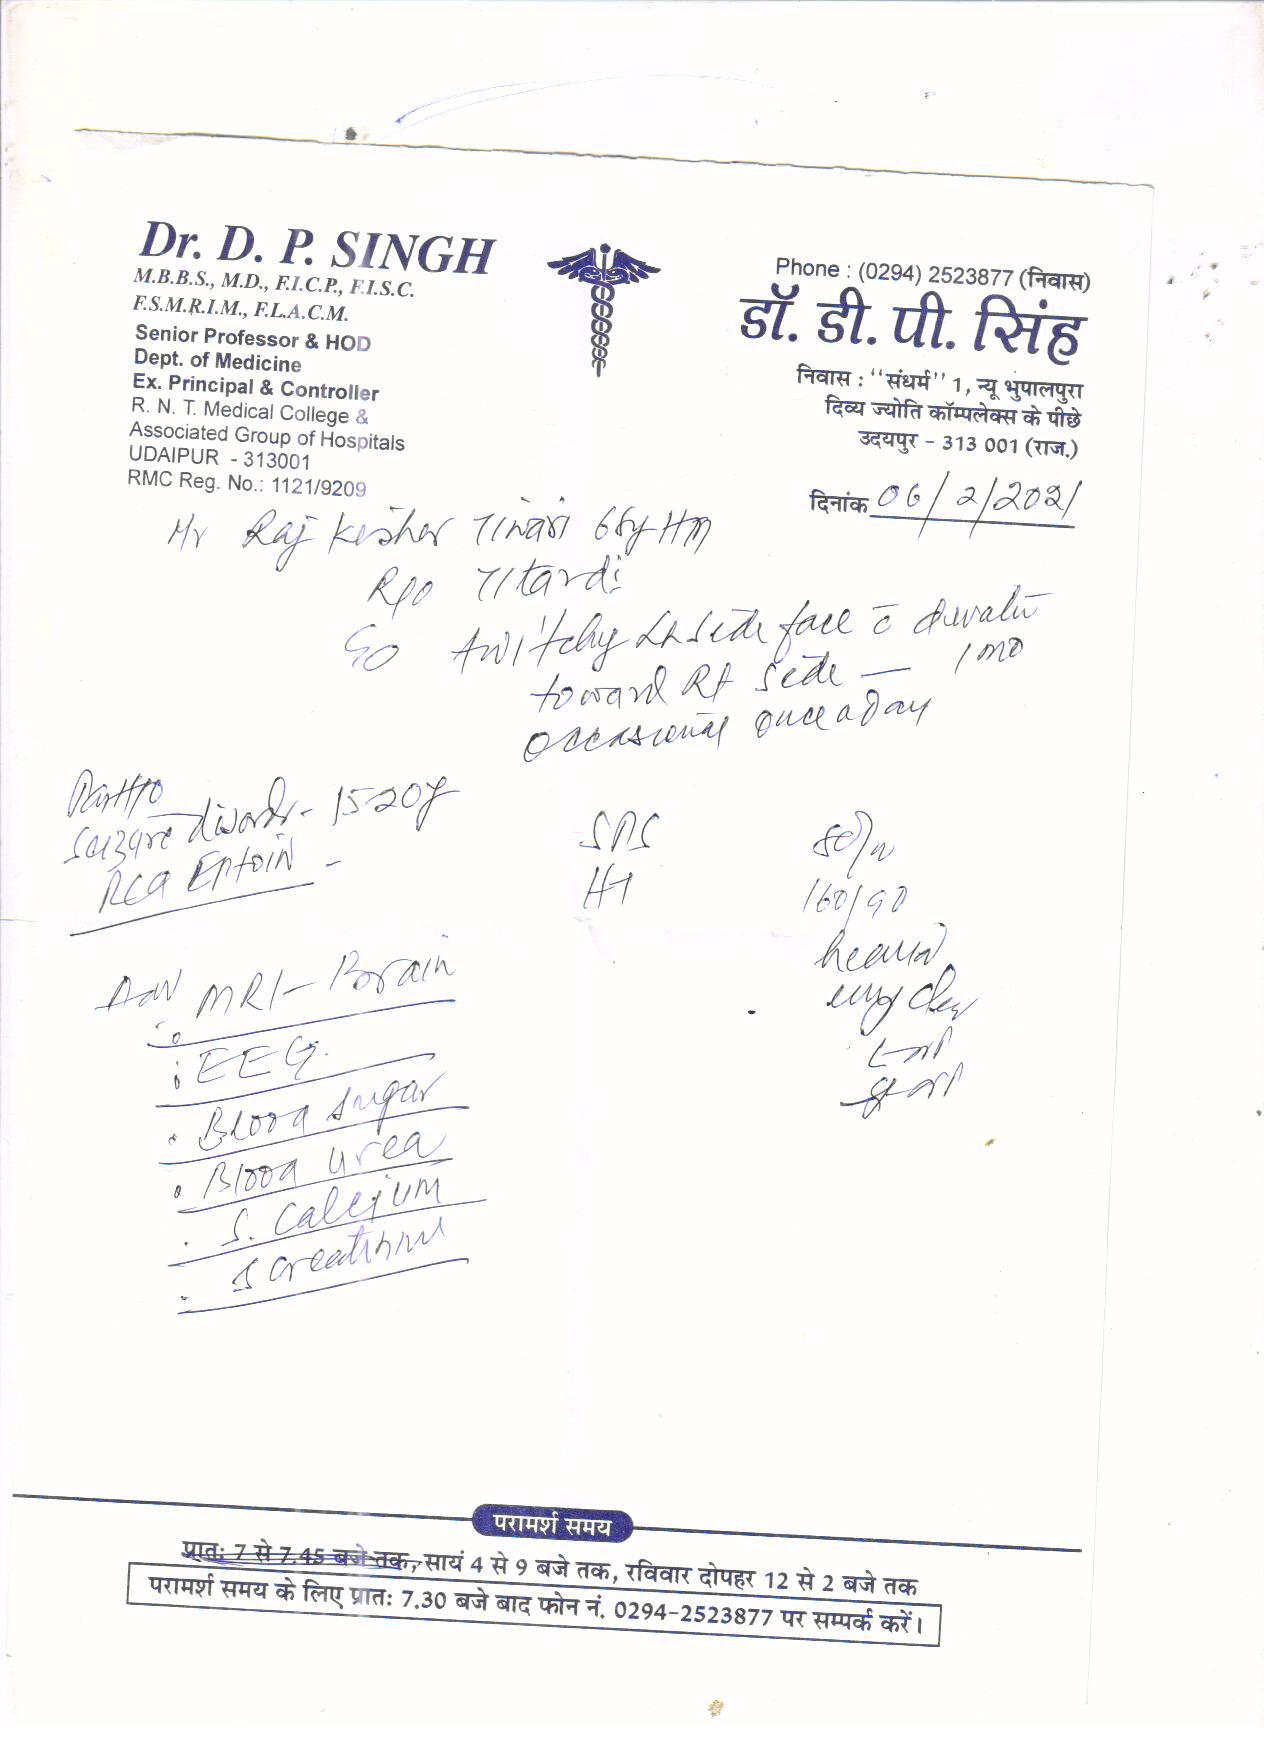 Dr. D. P. SINGH
M.B.B.S., M.D., F.I.C.P., F.I.S.C.
F.S.M.R.I.M., F.L.A.C.M.
Senior Professor & HOD
Dept. of Medicine
Ex. Principal & Controller
R. N. T. Medical College &
Associated Group of Hospitals
UDAIPUR - 313001
RMC Reg. No.: 1121/9209
Phone : (0294) 2523877 (निवास)
डॉ. डी. पी. सिंह
निवास : "संधर्म" 1, न्यू भुपालपुरा
दिव्य ज्योति कॉम्पलेक्स के पीछे
उदयपुर - 313 001 (राज.)
दिनांक 06/2/2021
Mr Raj Kishor Tiwari
R/o Titardi
twitchy side face c̄
toward Rt side — 1 mo
occasional once a day
Seizure disorder - 15-20y
Eptoin -
HT 160/90
Adv MRI - Brain
EEG.
Blood Sugar
Blood urea
S. Calcium
S creatinine
परामर्श समय
प्रातः 7 से 7.45 बजे तक, सायं 4 से 9 बजे तक, रविवार दोपहर 12 से 2 बजे तक
परामर्श समय के लिए प्रातः 7.30 बजे बाद फोन नं. 0294-2523877 पर सम्पर्क करें।